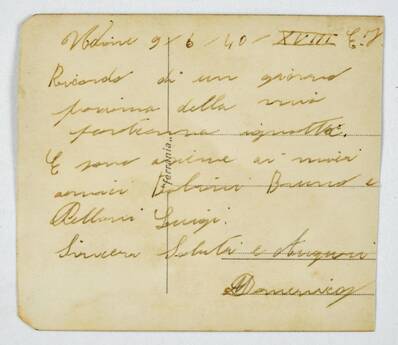 Udine 9/6/40-XVIII E.F.
Ricordo di un giorno
prima della mia
partenza ignotta.
E sono assieme ai miei
amici Bruno e
Belloni Luigi.
Sincera Saluti e Auguri
Domenico
"Ferrania"